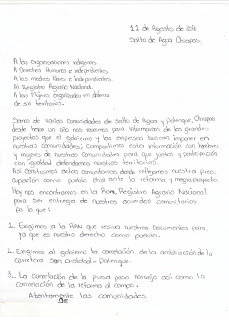 11 de Agosto de 2016
Salto de Agua Chiapas.
A las organizaciones indigenas
A Derechos Humanos e independientes,
A los medios libres e independientes.
Al Registro Agrario Nacional.
A los Pueblos organizados en defensa
de su territorio.
Somos de varias comunidades de salto de Agua y Palenque, Chiapas
desde hace un año nos reunimos para informarnos de los grandes
proyectos que el gobierno y las empresas buscan imponer en
nuestras comunidades; Compartimos esta información con hombres
y mujeres de nuestras comunidades para que juntos y participación
con igualdad defendamos nuestros territorios.
Así construimos actas comunitarias donde reflejamos nuestra firme
oposición como pueblo chol ante la reforma y megaproyectos.
Hoy nos encontramos en la RAN, Registro Agrario Nacional
para ser entrega de nuestros acuerdos comunitarios
ya lo que:
1. Exigimos a la RAN que reciva nuestros Documentos para
ya que es nuestro derecho como pueblo.
2. Exigimos al gobierno la cancelación de la
carretera San Cristobal - Palenque.
3. La cancelación de la presa así como la
cancelación de la reforma al campo.
Atentamente las comunidades.